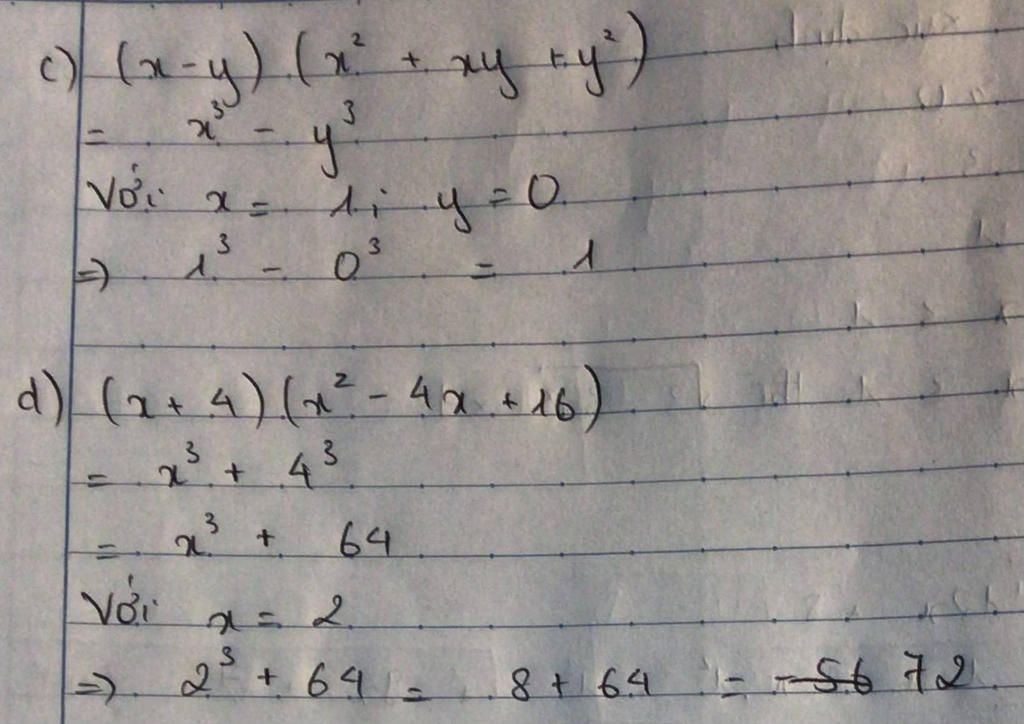 c) (x-y) (x² + xy + y²)
= x³ - y³
Với x = 1; y = 0
=> 1³ - 0³ = 1
d) (x + 4) (x² - 4x + 16)
= x³ + 4³
= x³ + 64
Với x = 2
=> 2³ + 64 = 8 + 64 = -56 72